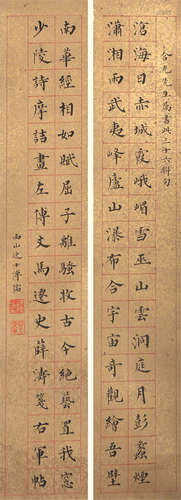 合光先生屬書此三十六聯句
滄海日赤城霞峨嵋雪巫山雲洞庭月彭蠡煙
瀟湘雨武夷峰廬山瀑布合宇宙奇觀繪吾壁
少陵詩摩詰畫左傳文馬遷史薛濤箋右軍帖
南華經相如賦屈子離騷收古今絕藝置我窗
西山逸士溥儒